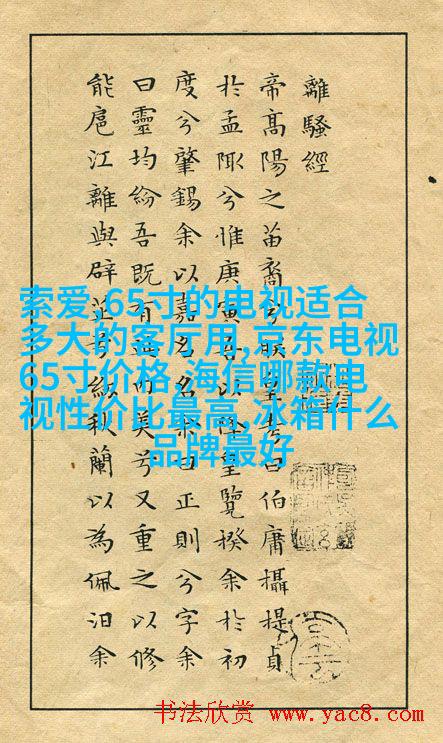 離騷經
帝高陽之苗裔兮朕皇考曰伯庸攝提貞
於孟陬兮惟庚寅吾以降皇覽揆余於初
度兮肇錫余以嘉名名余曰正則兮字余
曰靈均紛吾既有此內美兮又重之以修
能扈江離與辟芷兮紉秋蘭以為佩汨余
索爱,65寸的电视适合
多大的客厅用,京东电视
65寸价格,海信哪款电
视性价比最高,冰箱什么
品牌最好
书法欣赏 www.yac8.com